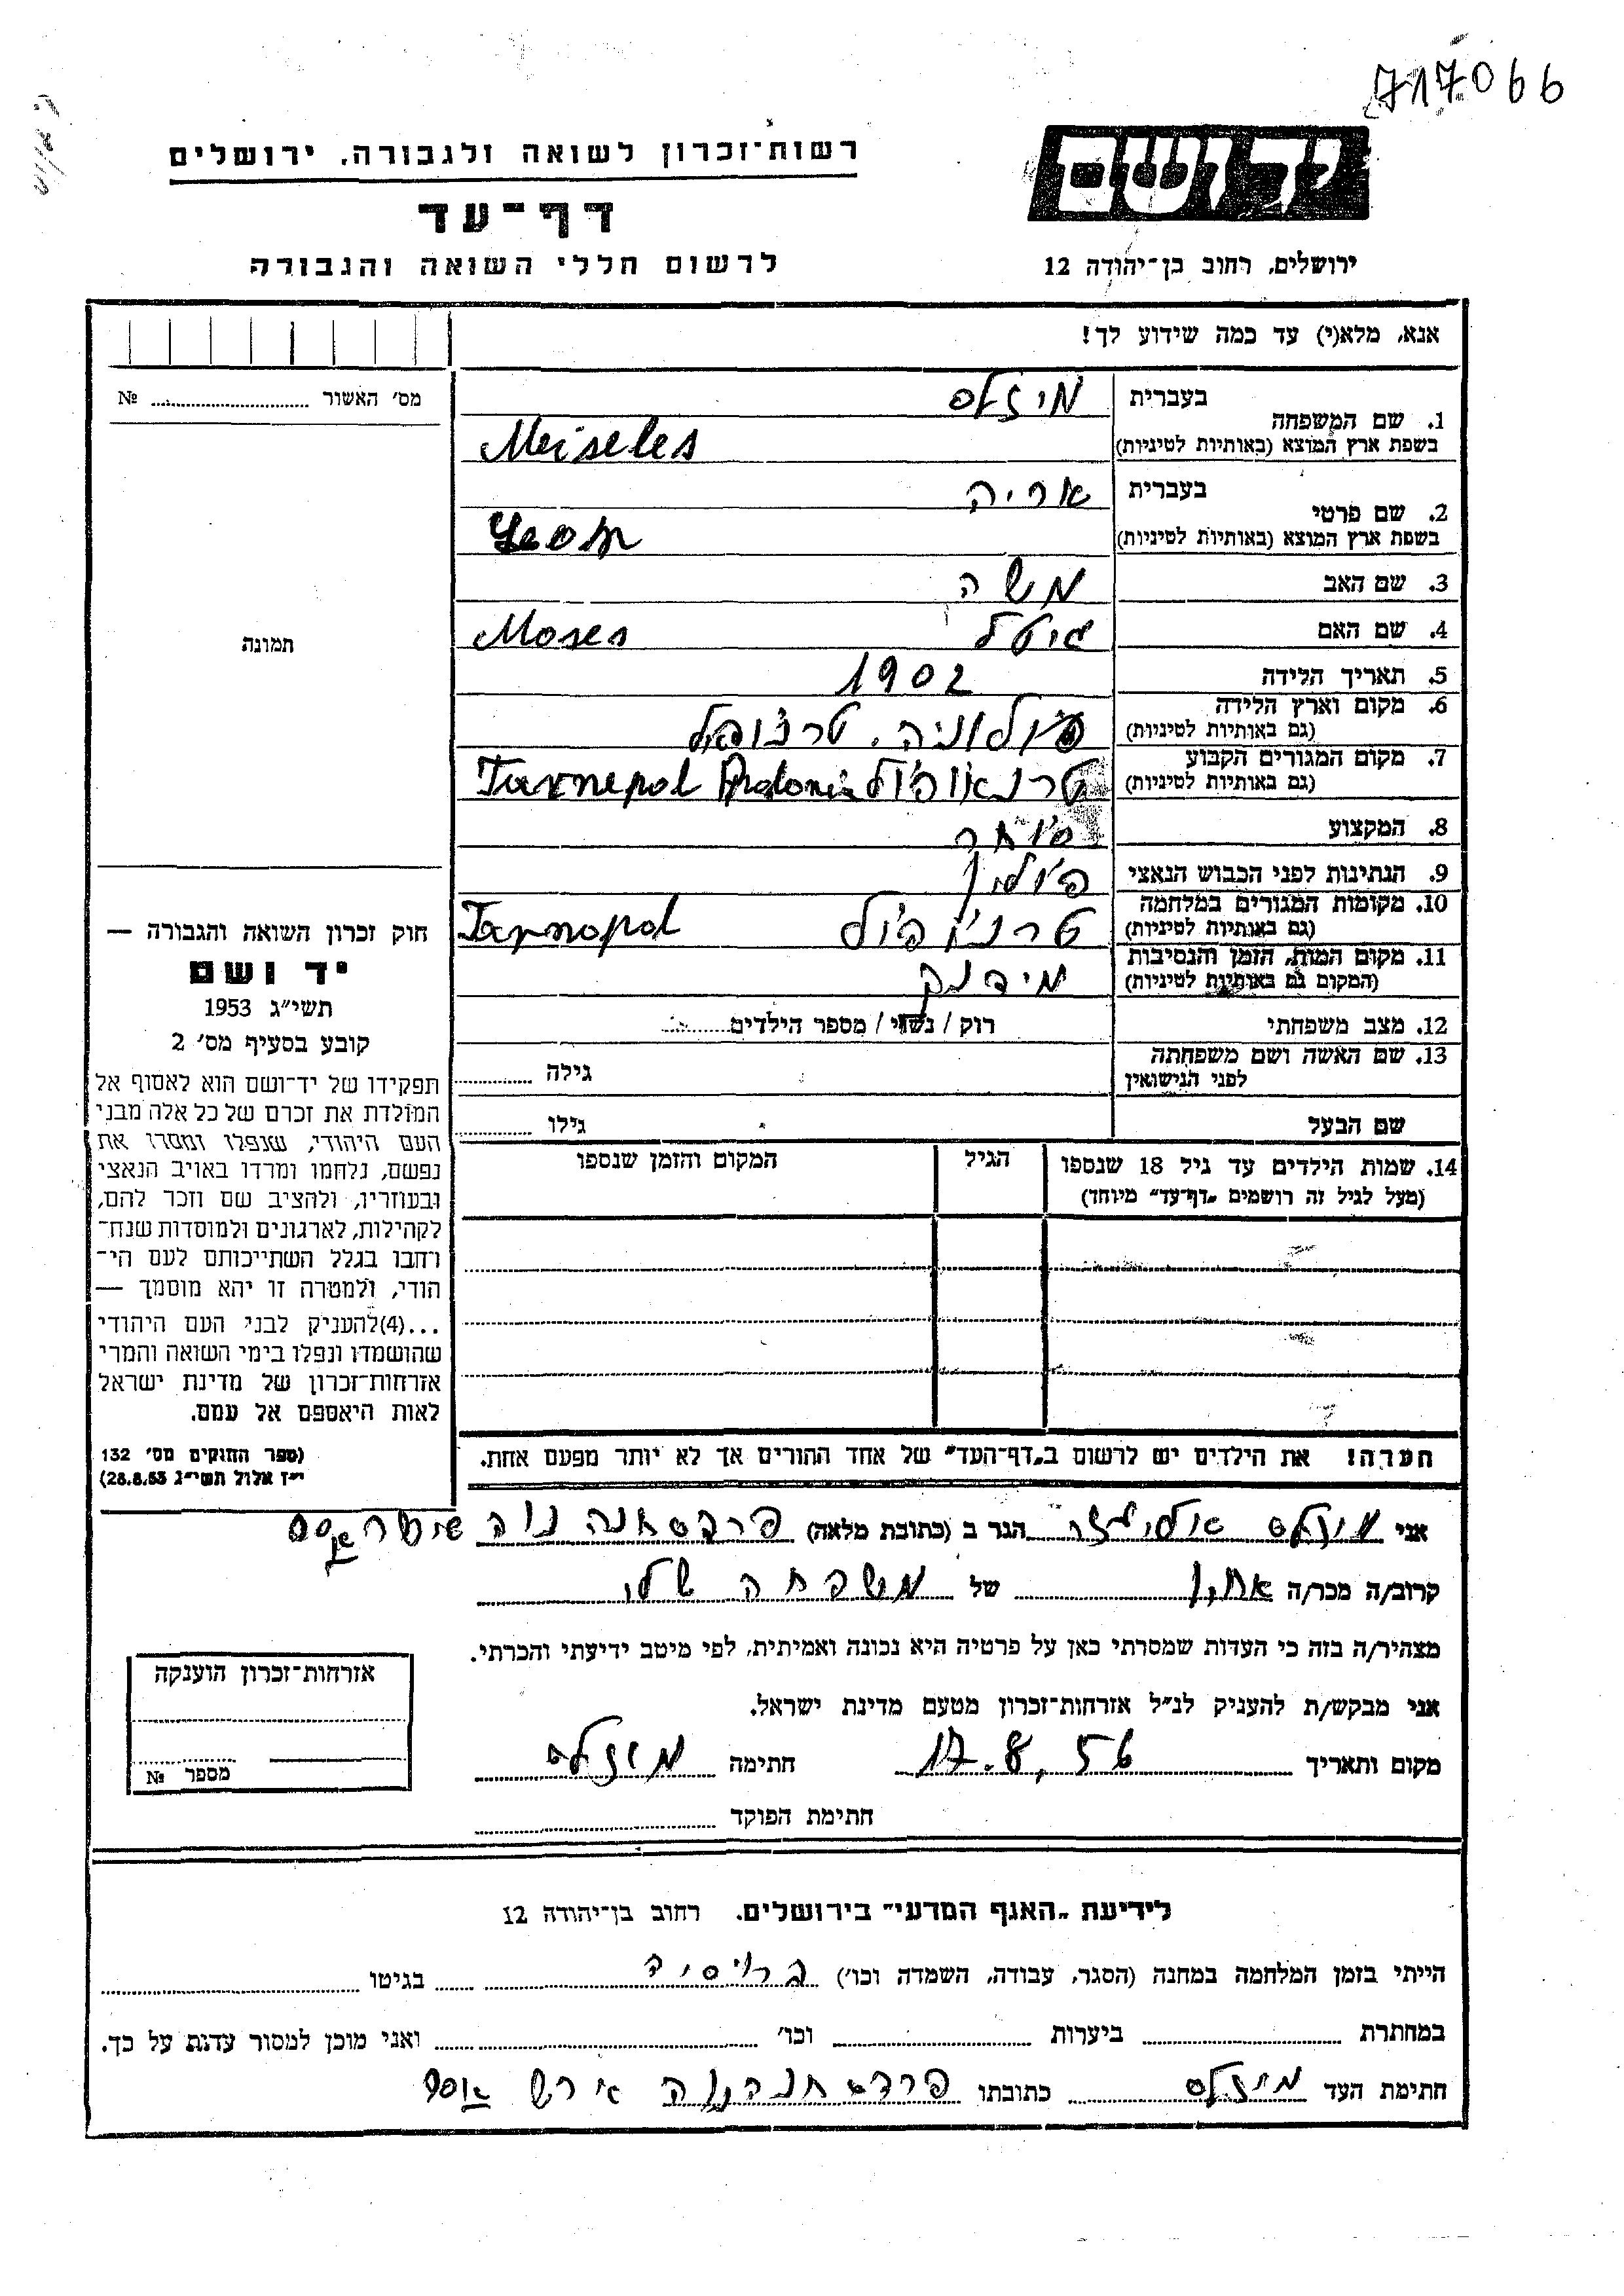 717066
יד ושם
רשות־זכרון לשואה ולגבורה, ירושלים
דף־עד
לרשום חללי השואה והגבורה
ירושלים, רחוב בן־יהודה 12
אנא, מלא(י) עד כמה שידוע לך!
מס' האשור № 
תמונה
1. שם המשפחה
בעברית מיזלס
בשפת ארץ המוצא (באותיות לטיניות) Meiseles
2. שם פרטי
בעברית אריה
בשפת ארץ המוצא (באותיות לטיניות) Leon
3. שם האב משה
4. שם האם גיטל Moses
5. תאריך הלידה 1902
6. מקום וארץ הלידה
(גם באותיות לטיניות) פולוניה, טרנופול
7. מקום המגורים הקבוע
(גם באותיות לטיניות) טרנאופול Tarnepol Polonia
8. המקצוע סוחר
9. הנתינות לפני הכבוש הנאצי פולין
10. מקומות המגורים במלחמה
(גם באותיות לטיניות) טרנופול Tarnopol
11. מקום המות, הזמן והנסיבות
(המקום גם באותיות לטיניות) מידנק
12. מצב משפחתי רוק / נשוי / מספר הילדים
13. שם האשה ושם משפחתה
לפני הנישואין גילה
שם הבעל גילו
14. שמות הילדים עד גיל 18 שנספו הגיל המקום והזמן שנספו
(מעל לגיל זה רושמים „דף־עד" מיוחד)
חוק זכרון השואה והגבורה —
יד ושם
תשי"ג 1953
קובע בסעיף מס' 2
תפקידו של יד־ושם הוא לאסוף אל
המולדת את זכרם של כל אלה מבני
העם היהודי, שנפלו ומסרו את
נפשם, נלחמו ומרדו באויב הנאצי
ובעוזריו, ולהציב שם וזכר להם,
לקהילות, לארגונים ולמוסדות שנח־
רבו בגלל השתייכותם לעם הי־
הודי, ולמטרה זו יהא מוסמך —
...(4)להעניק לבני העם היהודי
שהושמדו ונפלו בימי השואה והמרי
אזרחות־זכרון של מדינת ישראל
לאות היאספם אל עמם.
(ספר החוקים מס' 132
י"ז אלול תשי"ג 28.8.53)
הערה! את הילדים יש לרשום ב„דף־העד" של אחד ההורים אך לא יותר מפעם אחת.
אני מיזלס הגר ב (כתובת מלאה) פרדס חנה נוה
קרוב/ה מכר/ה של משפחה שלי
מצהיר/ה בזה כי העדות שמסרתי כאן על פרטיה היא נכונה ואמיתית, לפי מיטב ידיעתי והכרתי.
אני מבקש/ת להעניק לנ"ל אזרחות־זכרון מטעם מדינת ישראל.
מקום ותאריך 17.8.56 חתימה מיזלס
חתימת הפוקד
אזרחות־זכרון הוענקה
מספר №
לידיעת „האגף המדעי" בירושלים, רחוב בן־יהודה 12
הייתי בזמן המלחמה במחנה (הסגר, עבודה, השמדה וכו') ברוסיה בגיטו
במחתרת ביערות וכו' ואני מוכן למסור עדות על כך.
חתימת העד מיזלס כתובתו פרדס חנה